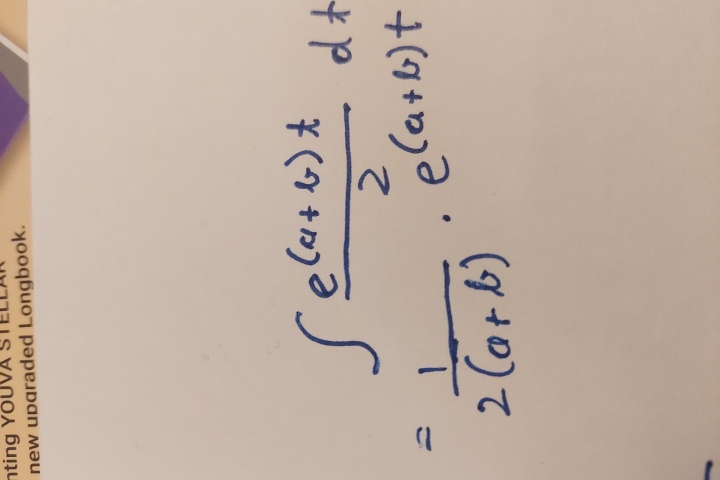 nting YOUVA STELLAR
new upgraded Longbook.
∫ e^(a+b)t / 2 dt
= 1 / 2(a+b) . e^(a+b)t